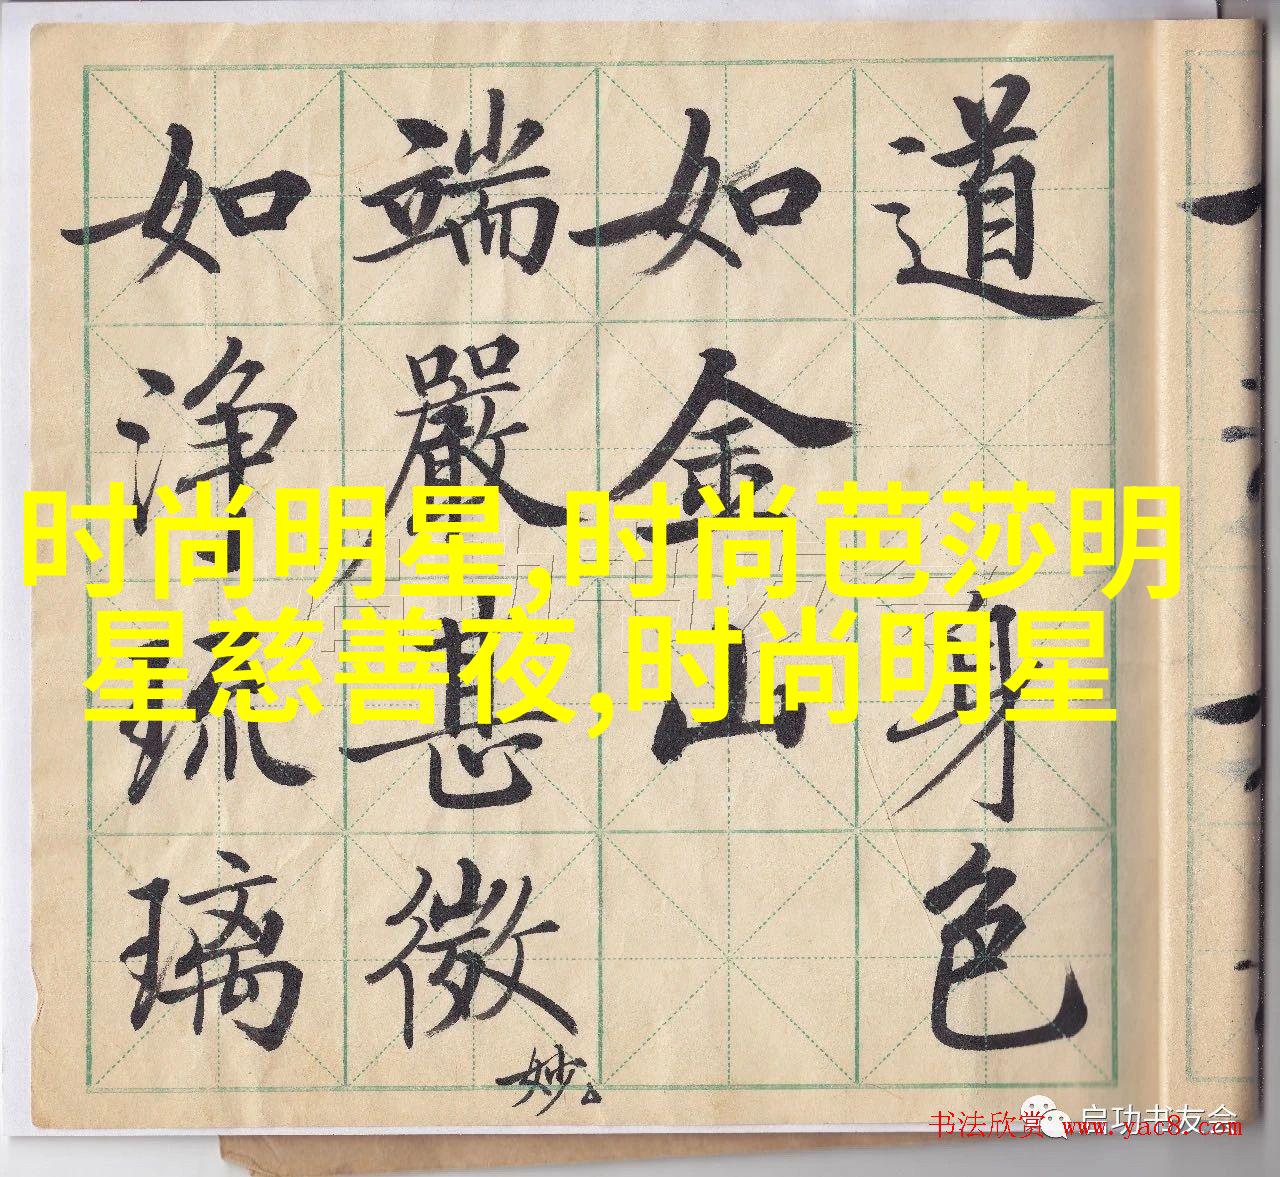 道
身色
如金山
端嚴甚微
妙
如淨琉璃
时尚明星,时尚芭莎明
星慈善夜,时尚明星
启功书友会
书法欣赏 www.yac8.com